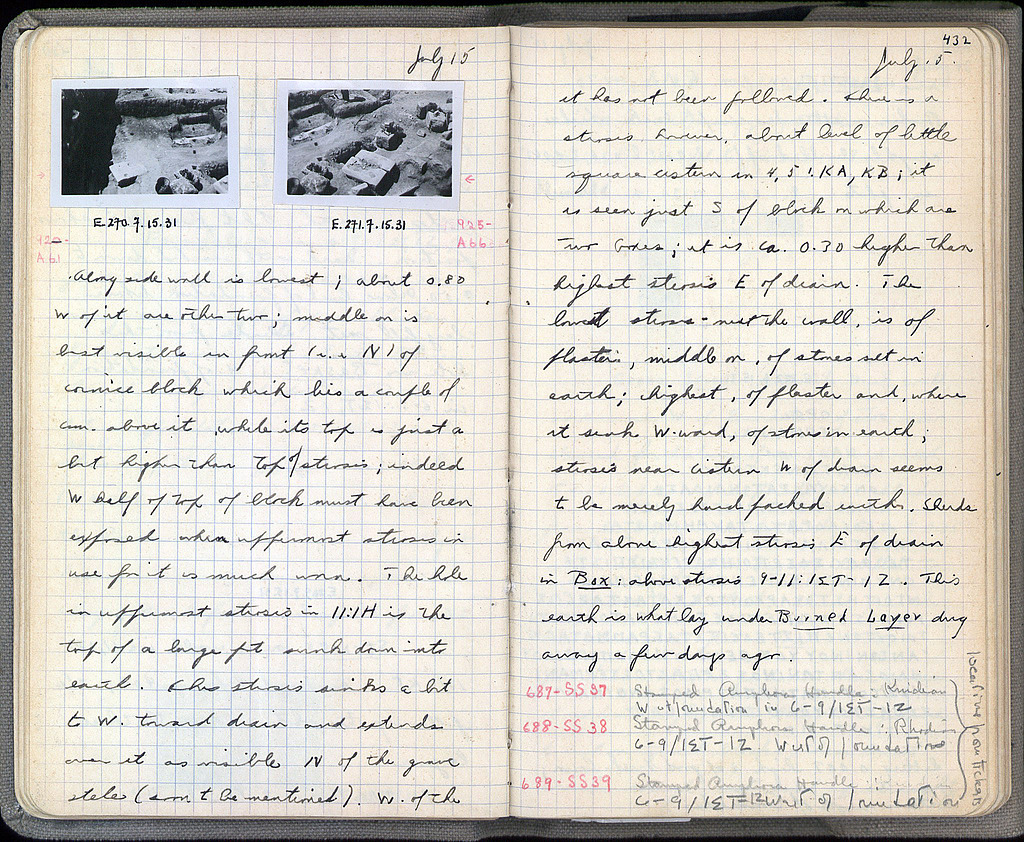 July 15
E.270.7.15.31
E.271.7.15.31
425-
A66
A61
Along side wall is lowest; about 0.80
W of it are other two; middle on is
best visible in front (i.e N) of
cornice block which lies a couple of
cm. above it, while its top is just a
bit higher than top of stereo is; indeed
W half of top of block must have been
exposed when uppermost sterosis in
use for it is much worn. The hole
in uppermost sterosis in 11:1H is the
top of a large pit sunk down into
earth. This sterosis sinks a bit
to W. toward drain and extends
over it as visible N of the grave
stele (soon to be mentioned). W. of the
432
July 15.
it has not been followed. There is a
sterosis however, about level of little
square cistern in 4, 5:KA, KB; it
is seen just S of block on which are
two boxes; it is ca. 0.30 higher than
highest sterosis E of drain. The
lowest sterosis - next the wall, is of
plaster, middle on, of stones set in
earth; highest, of plaster and, where
it sinks W-ward, of stones in earth;
sterosis near cistern W of drain seems
to be merely hard packed earth. Sherds
from above highest sterosis E of drain
in Box: above sterosis 9-11:1ΣT-1Z. This
earth is what lay under Burned Layer dug
away a few days ago.
687-SS37 Stamped Amphora Handle: Knidian
W of foundation in 6-9/1ΣT-1Z
688-SS38 Stamped Amphora Handle: Rhodian
6-9/1ΣT-1Z West of foundations
689-SS39 Stamped Amphora Handle
6-9/1ΣT-1Z West of foundation
locations from tickets